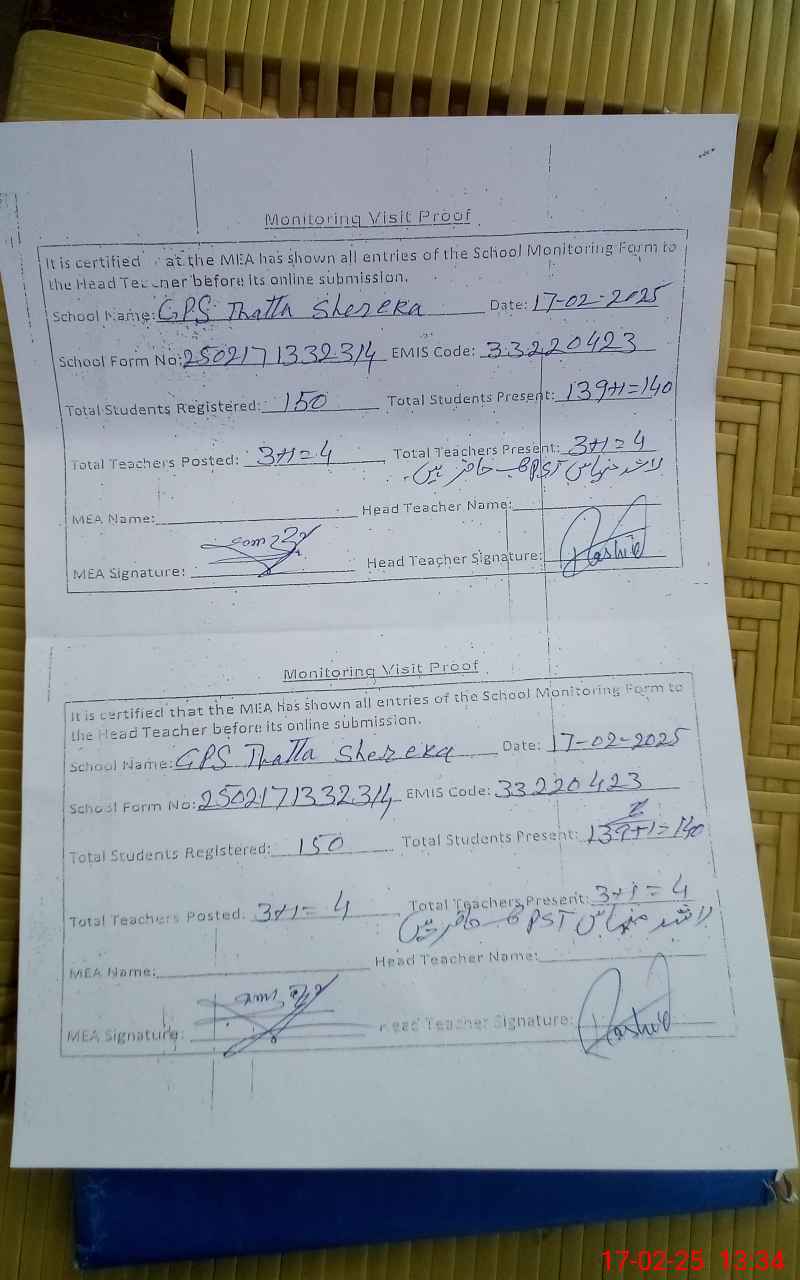 Monitoring Visit Proof
It is certified at the MEA has shown all entries of the School Monitoring Form to
the Head Teacher before its online submission.
School Name: GPS Thatta Shereka Date: 17-02-2025
School Form No: 2502171332314 EMIS Code: 33220423
Total Students Registered: 150 Total Students Present: 139+1=140
Total Teachers Posted: 3+1=4 Total Teachers Present: 3+1=4
راشد منہاس PST حاضر ہیں
MEA Name: Head Teacher Name:
MEA Signature: Head Teacher Signature: Rashid
Monitoring Visit Proof
It is certified that the MEA has shown all entries of the School Monitoring Form to
the Head Teacher before its online submission.
School Name: GPS Thatta Shereka Date: 17-02-2025
School Form No: 2502171332314 EMIS Code: 33220423
Total Students Registered: 150 Total Students Present: 139+1=140
Total Teachers Posted: 3+1=4 Total Teachers Present: 3+1=4
راشد منہاس PST حاضر ہیں
MEA Name: Head Teacher Name:
MEA Signature: Head Teacher Signature: Rashid
17-02-25 13:34